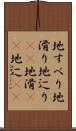 地すべり地
滑り地辷り
地滑
地辷